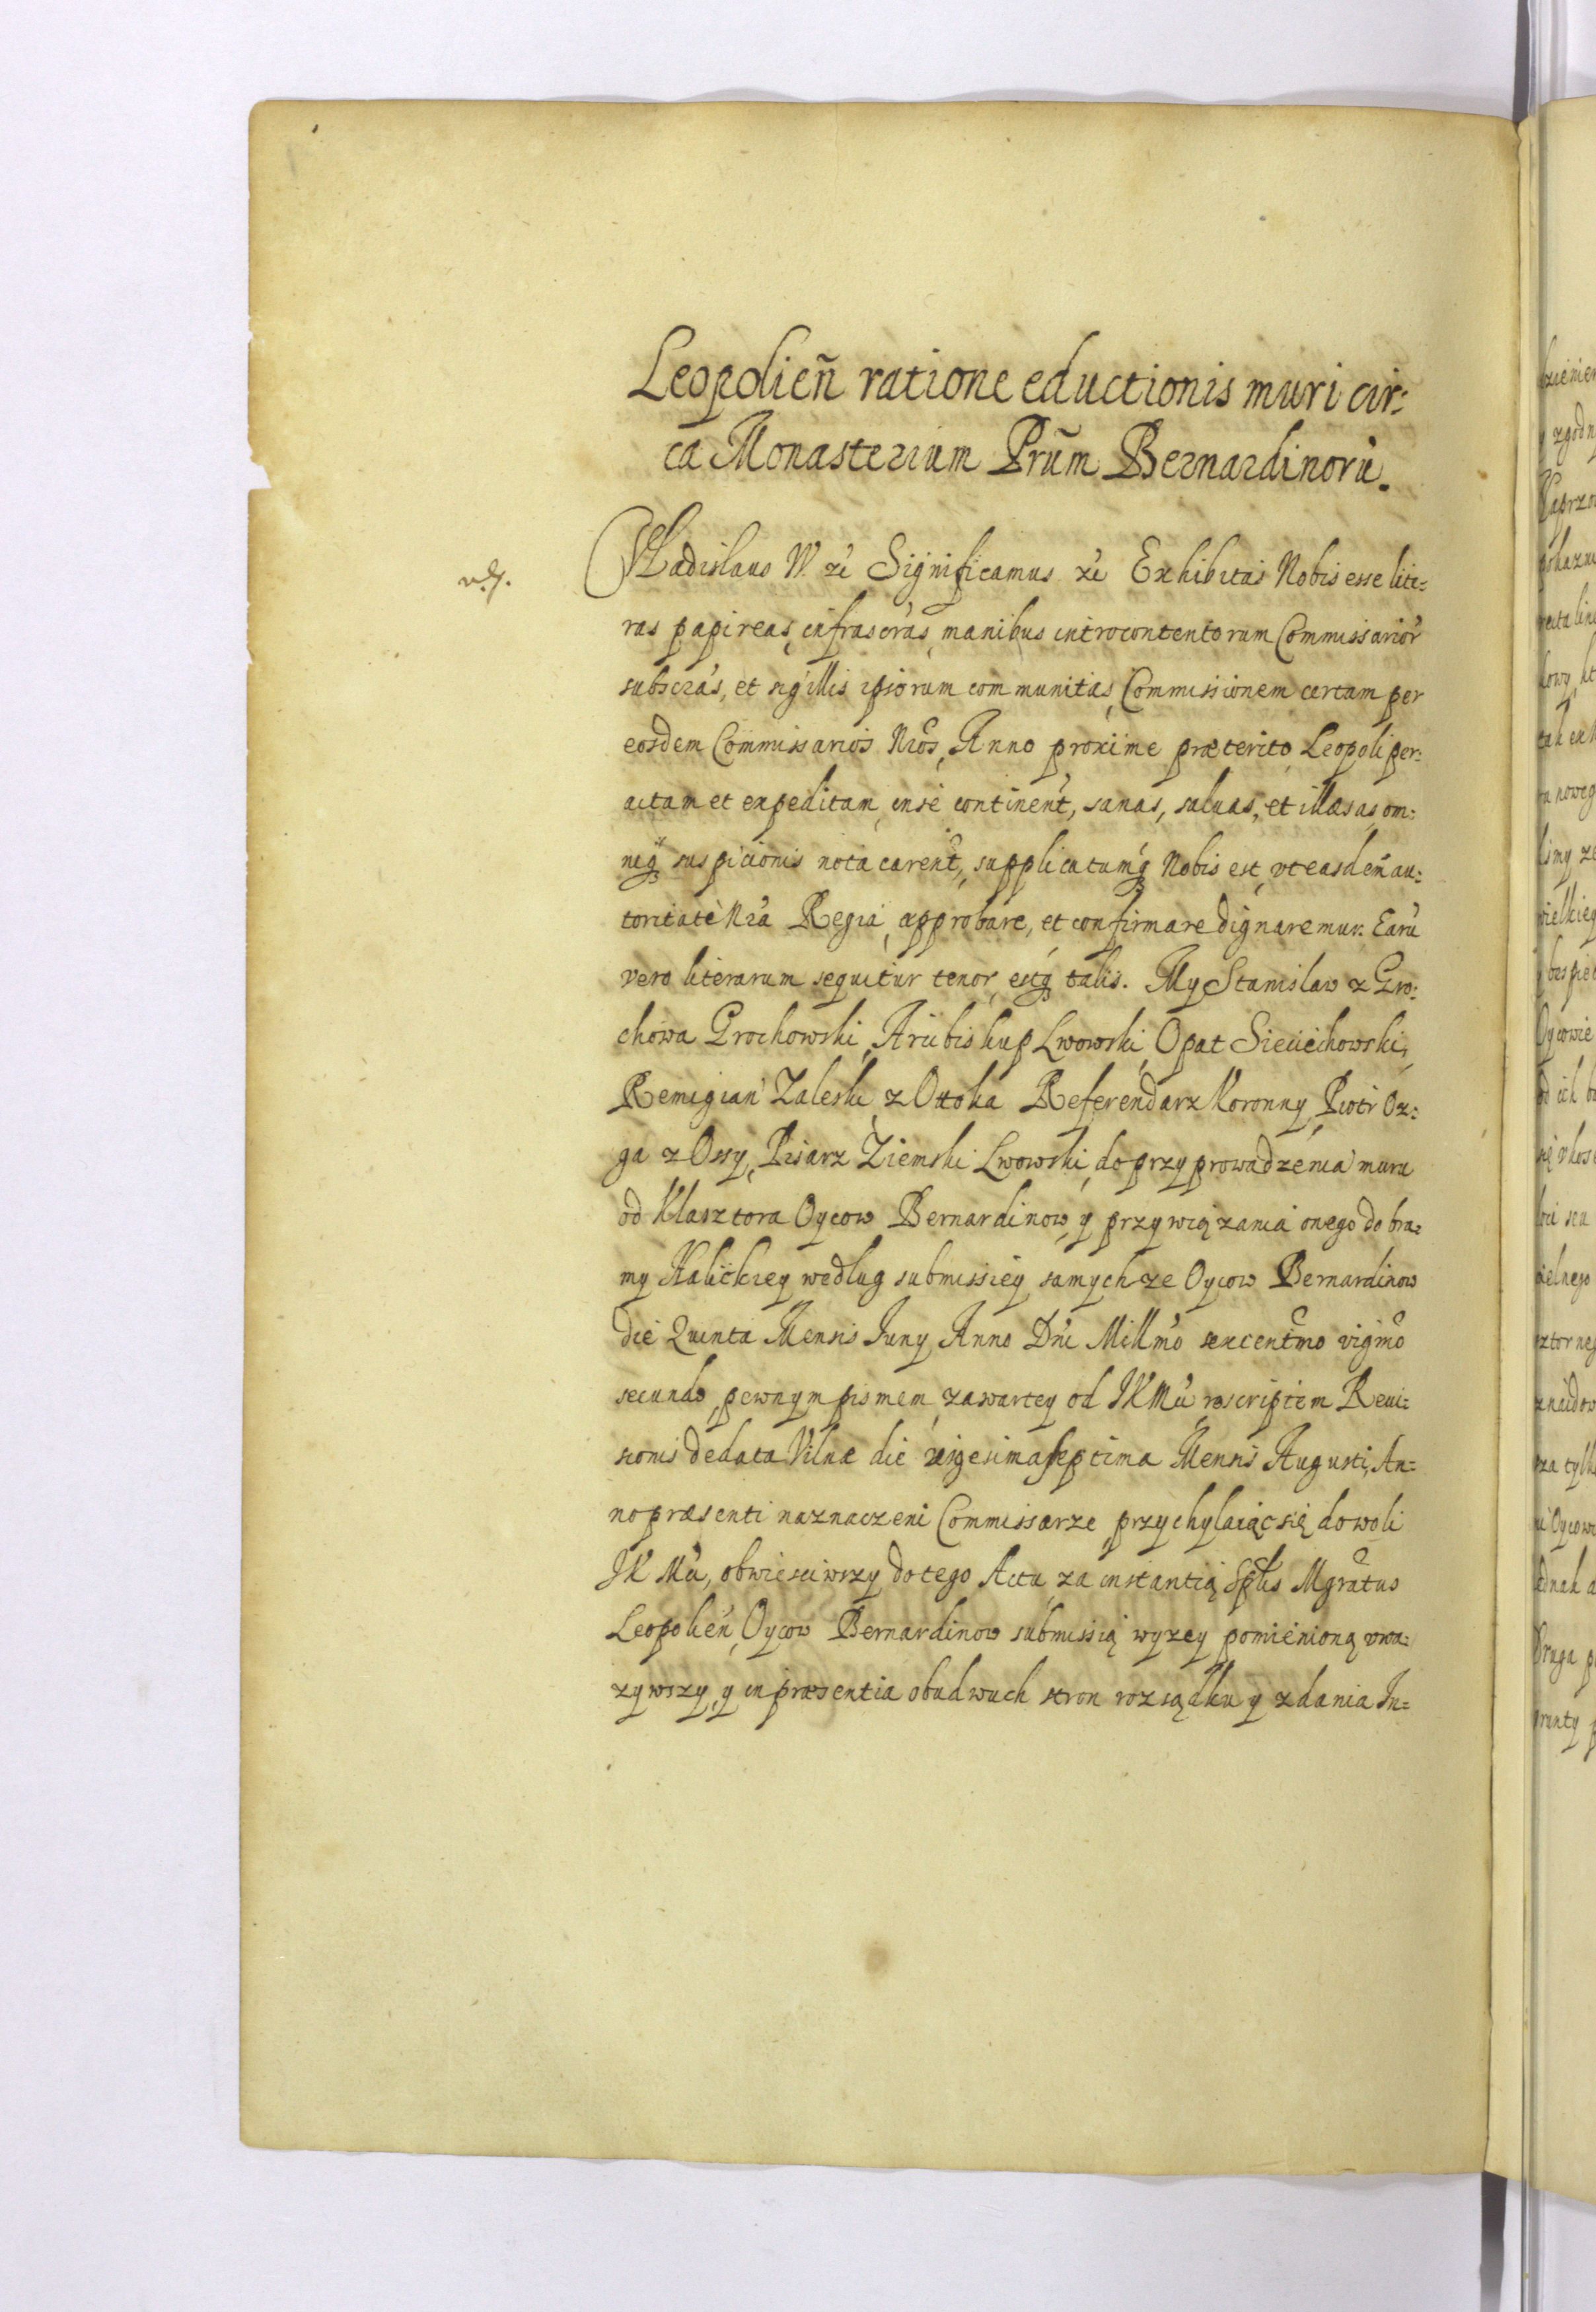 Leopolieñ ratione eductionis muri cir:
ca Monasterium Prũm Bernardinorũ.
Vladislaus IV. zẻ Significamus zẻ Exhibitas Nobis esse lite:
ras papireas, infrascrãs, manibus introcontentorum Commissariorũ
subscrãs, et sigillis ipsorum communitas, Commissionem certam per
eosdem Commissarios Nrõs, Anno proxime præterito, Leopoli per:
actam et expeditam, in se continent̃, sanas, saluas, et illæsas, om:
niq́ suspicionis nota carent̃, supplicatumq́ Nobis est, vt easdeñ au:
toritate Nrã Regia, approbare, et confirmare dignaremur. Earũ
vero literarum sequitur tenor, estq́ talis. My Stanislaw z Gro:
chowa Grochowski, Arcibiskup Lwowski, Opat Sieciechowski,
Remigian Zaleski z Ottoka Referendarz Koronny, Piotr Oz:
ga z Ossy, Pisarz Ziemski Lwowski, do przyprowadzenia muru
od Klasztora Oycow Bernardinow, y przywiązania onego do bra:
my Halickiey według submissiey samychze Oycow Bernardinow
die Quinta Mensis Iuny Anno Dñi Millmo sexcentmo vigmo
secundo, pewnym pismem zawartey od IKMci, rescriptem Reui:
sionis de data Vilnæ die vigesima septima Mensis Augusti, An:
no præsenti naznaczeni Commissarze, przychylaiąc się do woli
IK Mci, obwiesciwszy do tego Actu, za instantią Splis Mgratus
Leopolieñ, Oycow Bernardinow submissią wyzey pomienioną vwa:
zywszy, y in præsentia obudwuch stron rozsądku y zdania In: